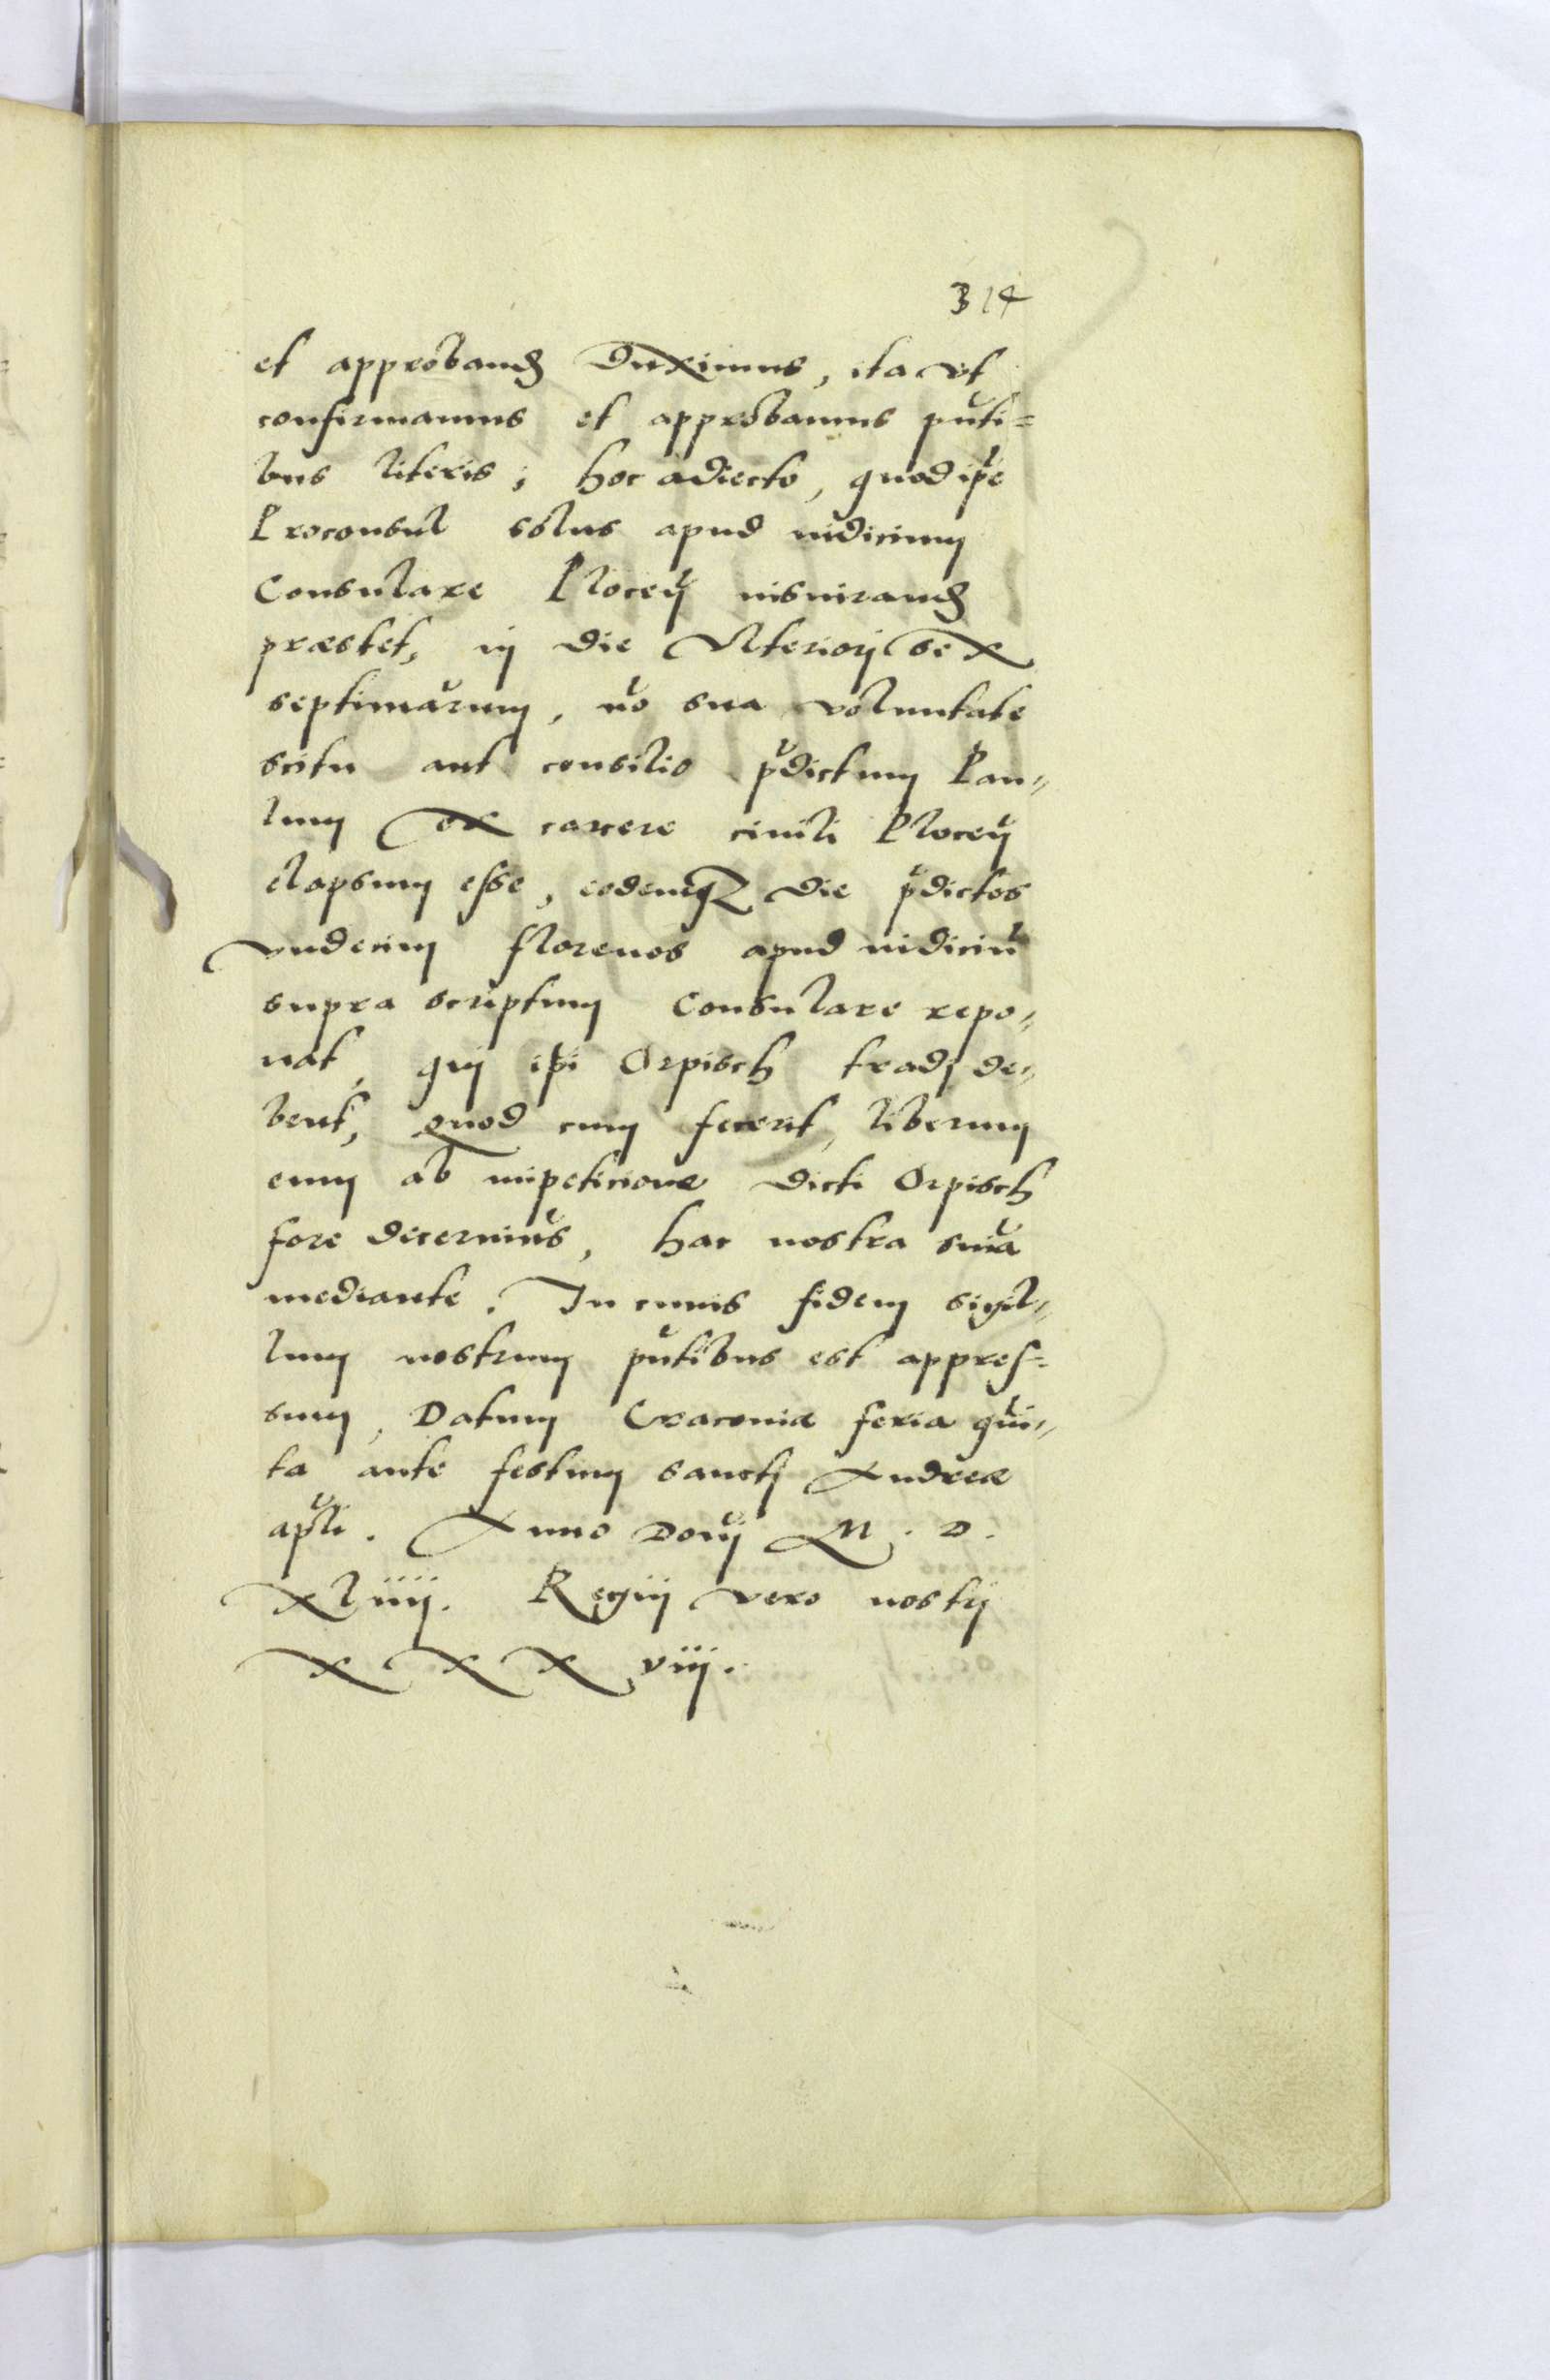 314
et approband duximus, ita vt
confirmamus et approbamus pnti=
bus literis; hoc adiecto, quod ipe
Proconsul solus apud iudicium
Consulare Plocen iusiurand
præstet, in die Vlteriori sex
septimarum, no sua voluntate
scitu aut consilio pdictum Pau„
lum ex carcere ciuili Plocen
elapsum esse, eodemq3 die pdictos
vndecim florenos apud iudiciu
supra scriptum Consulare repo„
nat, qui ipi Orpisch tradi de„
bent, quod cum fecerit, liberum
eum ab impeticione dicti Orpisch
fore decernims, hac nostra snia
mediante. In cuius fidem sigil„
lum nostrum pntibus est appres=
sum, Datum Cracouiæ feria qui„
ta ante festum sancti Andreæ
apli. Anno Doni M. D.
xliiij. Regni vero nostri
x x x viij.